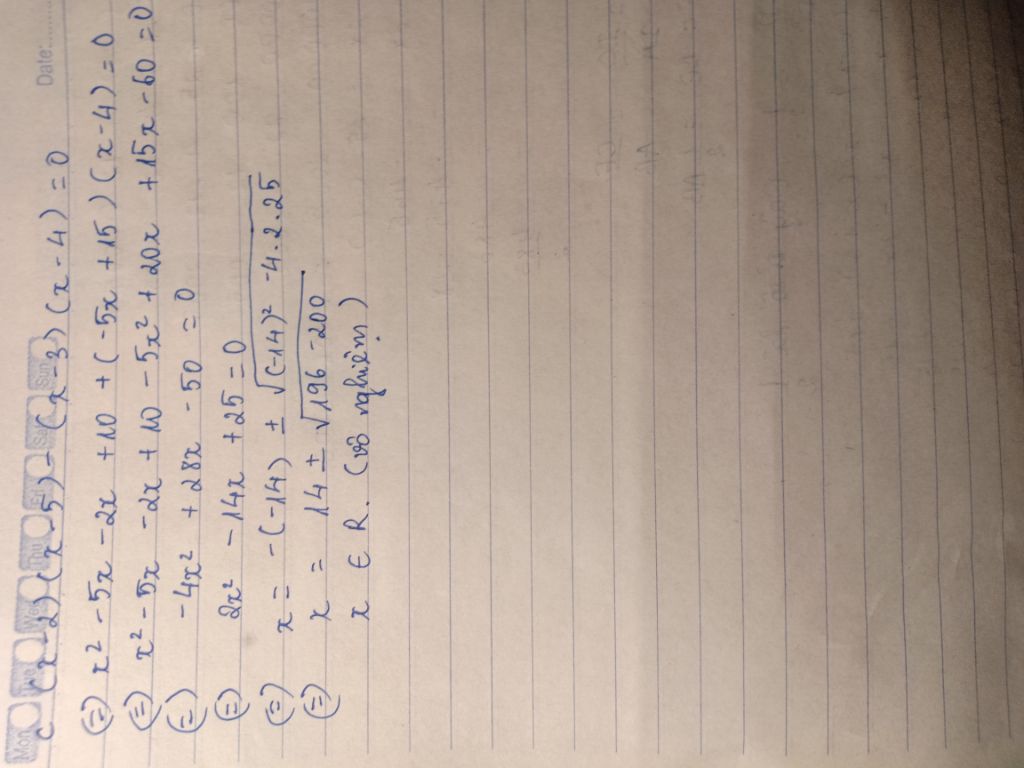 Date:
Mon Tue Wed Thu Fri Sat Sun
c (x-2)(x-5) - (x-3)(x-4) = 0
(=) x² - 5x - 2x + 10 + (-5x + 15)(x-4) = 0
(=) x² - 5x - 2x + 10 - 5x² + 20x + 15x - 60 = 0
(=) -4x² + 28x - 50 = 0
(=) 2x² - 14x + 25 = 0
(=) x = -(-14) ± √(-14)² - 4.2.25
(=) x = 14 ± √196 - 200
x ∈ R. (vô nghiệm)